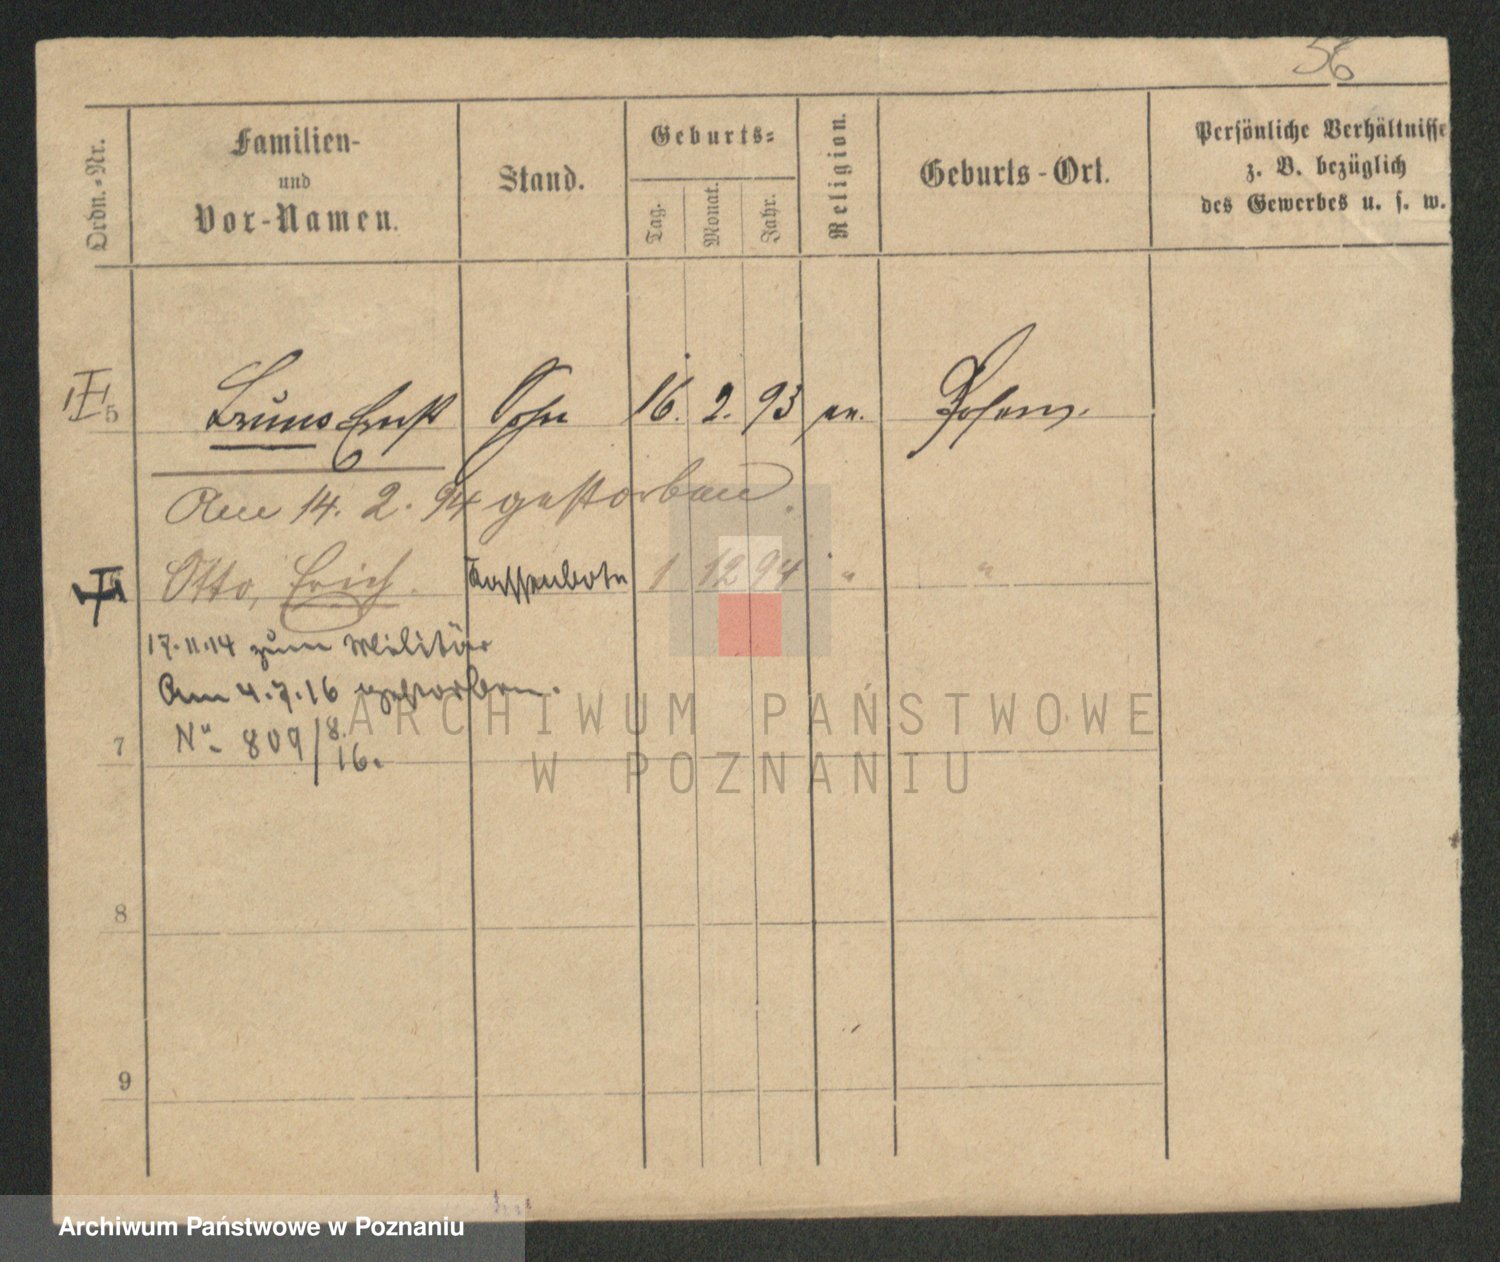 56
Ordn.-Nr.
Familien-
und
Vor-Namen.
Stand.
Geburts-
Tag.
Monat.
Jahr.
Religion.
Geburts-Ort.
Persönliche Verhältnisse
z. B. bezüglich
des Gewerbes u. s. w.
5 Bruno Ernst Sohn 16. 2. 93 ev. Posen.
Am 14. 2. 94 gestorben.
Otto, Erich. Kassenbote 1 12 94 " "
17.11.14 zum Militär
Am 4.7.16 gestorben.
7 No 809/8.16.
8
9
ARCHIWUM PAŃSTWOWE
W POZNANIU
Archiwum Państwowe w Poznaniu